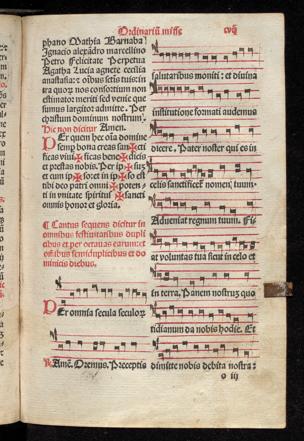 Ordinariũ misse
cvij
phano Mathia Barnaba
Ignacio alexãdro marcellino
Petro Felicitate Perpetua
Agatha Lucia agnete cecilia
anastasia: ⁊ oĩbus sctis tuis: in
tra quoꝝ nos consortium non
estimator meriti sed venie que
sumus largitor admitte. Per
christum dominum nostrum.
Hic non dicitur Amen.
Per quem hec oĩa domine
semp bona creas ✠ sancti
ficas viui ✠ ficas bene ✠ dicis
et prestas nobis. Per ip ✠ suȝ
et cum ip ✠ so: et in ip ✠ so es
tibi deo patri omni ✠ poten
ti in vnitate spiritus ✠ sancti
omnis honor et gloria.
¶ Cantus sequens dicitur in
omnibus festiuitatibus dupli
cibus et per octauas earum: et
oĩbus semiduplicibus et do
minicis diebus.
Per omnia secula seculoꝝ
℟ Amẽ. Oremus. Preceptis
salutaribus moniti: et diuina
institutione formati audemus
dicere. Pater noster qui es in
celis: sanctificet nomen tuum.
Adueniat regnum tuum. Fi
at voluntas tua sicut in celo et
in terra. Panem nostruȝ quo
tidianum da nobis hodie. Et
dimitte nobis debita nostra:
o iij